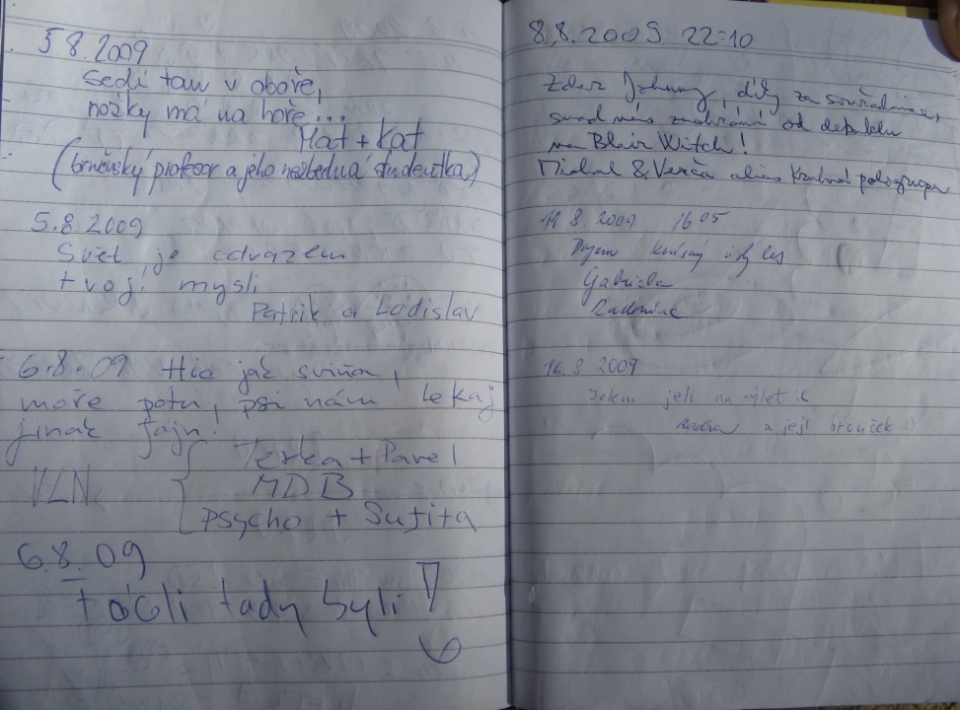 5.8.2009
Sedí tam v oboře,
nožky má na hoře...
Mat + Kat
(brněnský profesor a jeho nezbedná studentka)
5.8.2009
Svět je odrazem
tvojí mysli.
Patrik a Ladislav
6.8.09 Hic jak sviňa,
moře potu, psi nám lekaj
jinak fajn!
Terka + Pavel
VLN
MDB
Psycho + Sufita
6.8.09
tady byli!
8.8.2009 22:10
Zdar Johnny, díky za souřadnice,
snad nás zachrání od
na Blair Witch!
Michal & Verča alias
11.8.2009 16 05
les
Gabriela
16.8 2009
jeli na výlet
a její brouček :)